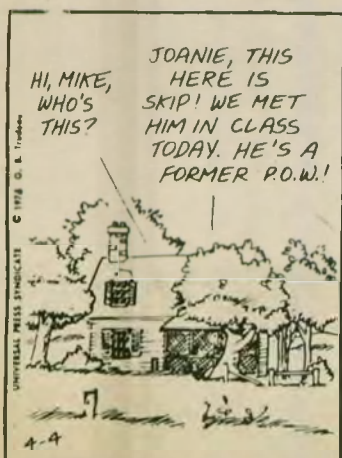 HI, MIKE,
WHO'S
THIS?
JOANIE, THIS
HERE IS
SKIP! WE MET
HIM IN CLASS
TODAY. HE'S A
FORMER P.O.W.!
UNIVERSAL PRESS SYNDICATE © 1973 G. B. Trudeau
4-4